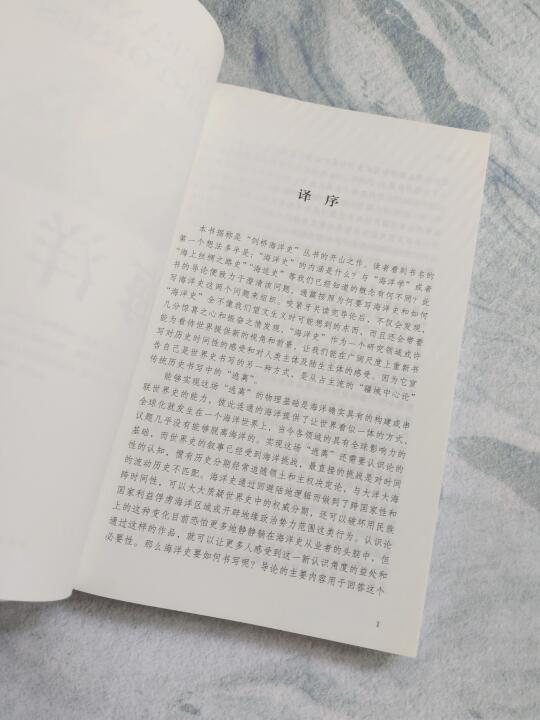 译 序
本书据称是“剑桥海洋史”丛书的开山之作。读者看到书名的
第一个想法多半是：“海洋史”的内涵是什么？与“海洋学”或者
“海上丝绸之路史”“海运史”等我们已经知道的概念有何不同？此
书的导论便致力于澄清该问题。通篇按照为何要写海洋史和如何
写海洋史这两个问题来组织。咬紧牙关读完导论后，不仅会发现，
“海洋史”全不像我们望文生义时可能想到的东西，而且还会带着
几分惊喜之心和振奋之情发现，“海洋史”作为一个研究领域或许
能为看待世界提供新的视角和前景，让我们能在广阔尺度上重新书
写对历史时间性的感受和对人类主体及陆生主体的感受。因为它宣
告自己是世界史书写的另一种方式，是从占主流的“疆域中心论”
传统历史书写中的“逃离”。
能够实现这场“逃离”的物理基础是海洋确实具有的构建或串
联世界史的能力，彼此连通的海洋提供了让世界看似一体的方式，
全球化就发生在一个海洋世界上，当今各领域的具有全球影响力的
议题几乎没有能够脱离海洋的。实现这场“逃离”还需要认识论的
基础，而世界史的叙事已经受到海洋挑战，最直接的挑战是对时间
性的认知，惯有历史分期经常追随领土和主权决定论，与大洋大海
的流动历史不匹配。海洋史通过回避陆地逻辑而做到了跨国家性和
跨时间性，可以大大质疑世界史中的权威分期，还可以破坏用民族
国家利益俘虏海洋区域或开辟地缘政治势力范围这类行为。认识论
上的这种变化目前恐怕更多地静静躺在海洋史从业者的头脑中，但
通过这样的作品，就可以让更多人感受到这一新认识角度的益处和
必要性。那么海洋史要如何书写呢？导论的主要内容用于回答这个
1